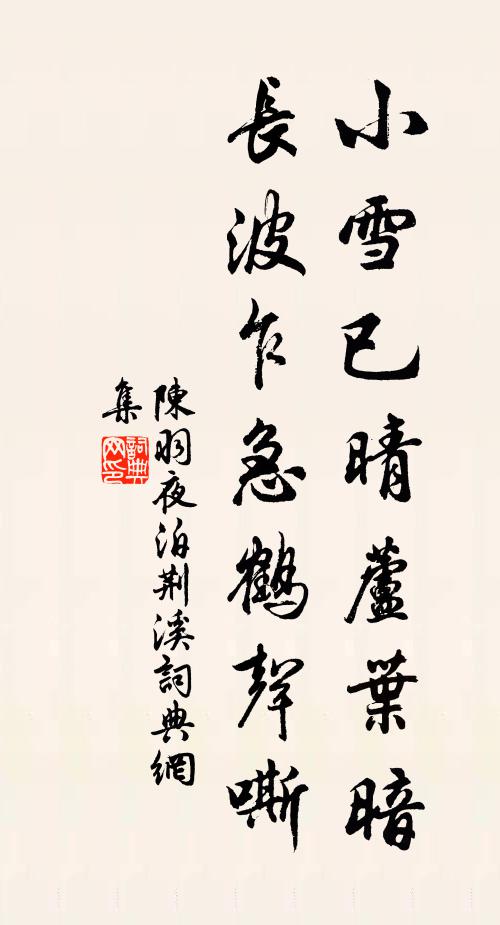 小雪已晴蘆葉暗
長波乍急鶴聲嘶
陳羽夜泊荆溪詞典網
集
詞典網印